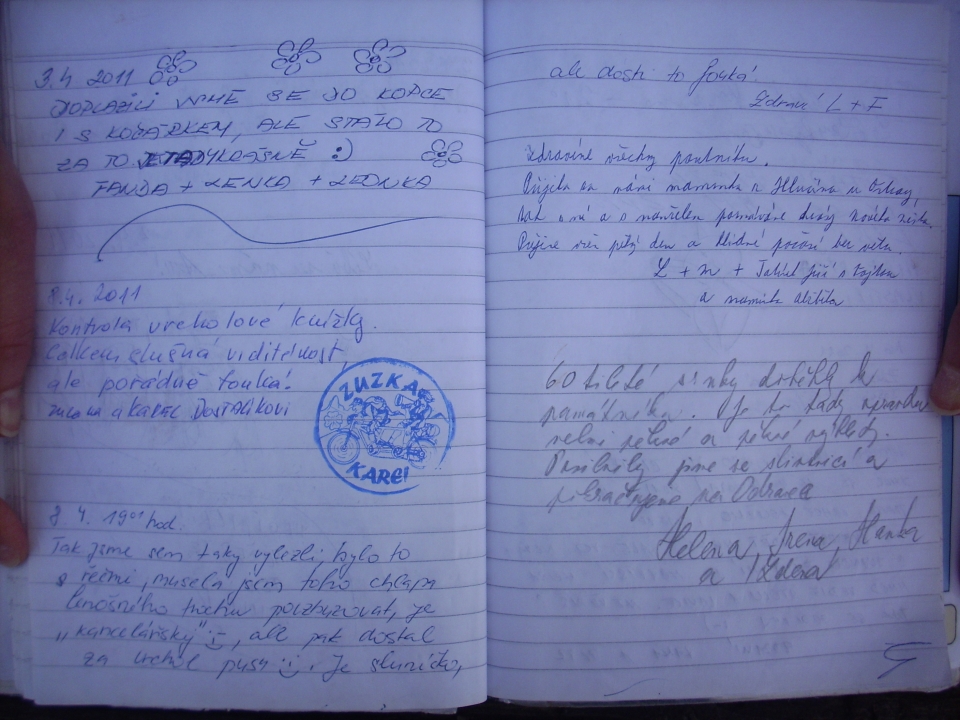 3.4 2011
DOPLAZILI JSME SE DO KOPCE
I S KOČÁRKEM, ALE STÁLO TO
ZA TO JE TADY KRÁSNĚ :)
FANDA + LENKA + LEONKA
8.4. 2011
Kontrola vrcholové knížky.
Celkem slušná viditelnost,
ale pořádně fouká!
Zuzana a KAREL DOSTALÍKOVI
ZUZKA
KAREL
8. 4. 19⁰¹ hod.
Tak jsme sem taky vylezli, bylo to
s řečmi, musela jsem toho chlapa
lenošného trochu povzbuzovat, je
„kancelářský" :-), ale pak dostal
za vrchol pusu :-). Je sluníčko,
ale dosti to fouká!
Zdraví L + F
Zdravíme všechny poutníky.
Přijela za námi maminka z Hlučína u Ostravy,
tak s ní a s manželem poznáváme krásy
den a klidné počasí bez větru.
L + M +
a maminka
60 tileté srnky doběhly k
památníku. Je to tady opravdu
velmi pěkné a pěkné výhledy.
Posilnily jsme se slivovicí a
pokračujeme na Odranec
Helena, Irena, Hanka
a Zdena